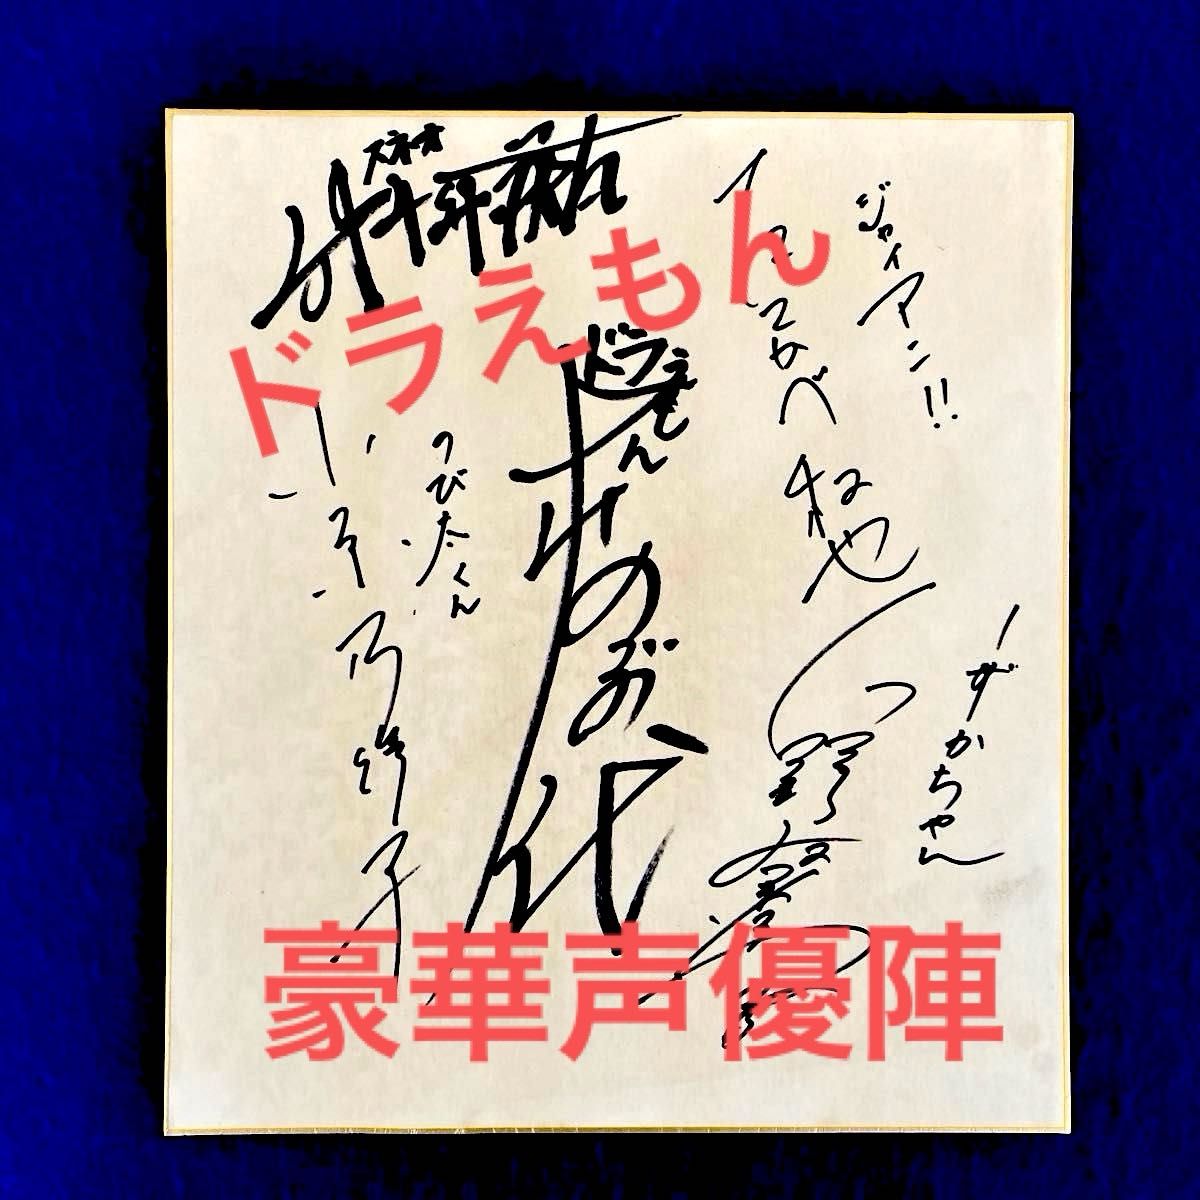 ドラえもん
ジャイアン!!
たてかべ和也
しずかちゃん
野村道子
ドラえもん
大山のぶ代
のび太くん
小原乃梨子
スネオ
肝付兼太
豪華声優陣